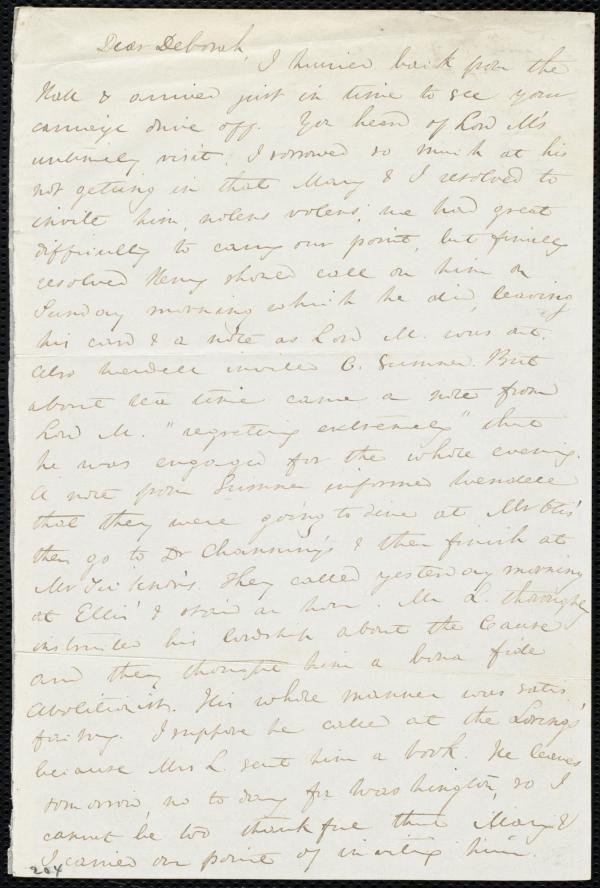 Dear Deborah,
I hurried back from the
Hall & arrived just in time to see your
carriage drive off. You heard of Lord M's
untimely visit. I sorrowed so much at his
not getting in that Mary & I resolved to
invite him, nolens volens; we had great
difficulty to carry our point, but finally
resolved Henry should call on him on
Sunday morning which he did, leaving
his card & a note as Lord M. was out.
Also Wendell invited C. Sumner. But
about tea time came a note from
Lord M. "regretting extremely" that
he was engaged for the whole evening.
A note from Sumner informed Wendell
that they were going to dine at Mr Otis'
then go to Dr Channing's & then finish at
Mr Ticknor's. They called yesterday morning
at Ellis' & staid an hour. Mr L. thoroughly
instructed his lordship about the Cause
and they thought him a bona fide
abolitionist. His whole manner was satis
fying. I suppose he called at the Lorings'
because Mrs L. sent him a book. He leaves
tomorrow, no to day for Washington, so I
cannot be too thankful that Mary &
I carried our point of inviting him.
204